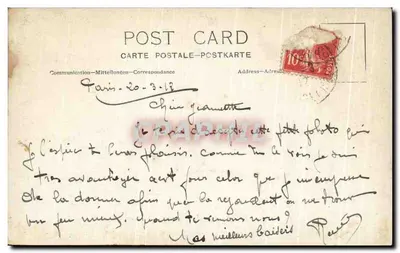 POST CARD
CARTE POSTALE—POSTKARTE
Communication—Mittheilung—Correspondance
Address—Adresse
10
Paris 20-3-13
Chère Jeannette
Je cette petite photo qui
je l'espère te fera plaisir. comme tu le vois je suis
très avantagée c'est pour cela que je
de la donner afin que la regardant on me trouve
un peu mieux. quand te reverrons nous?
Mes meilleurs baisers